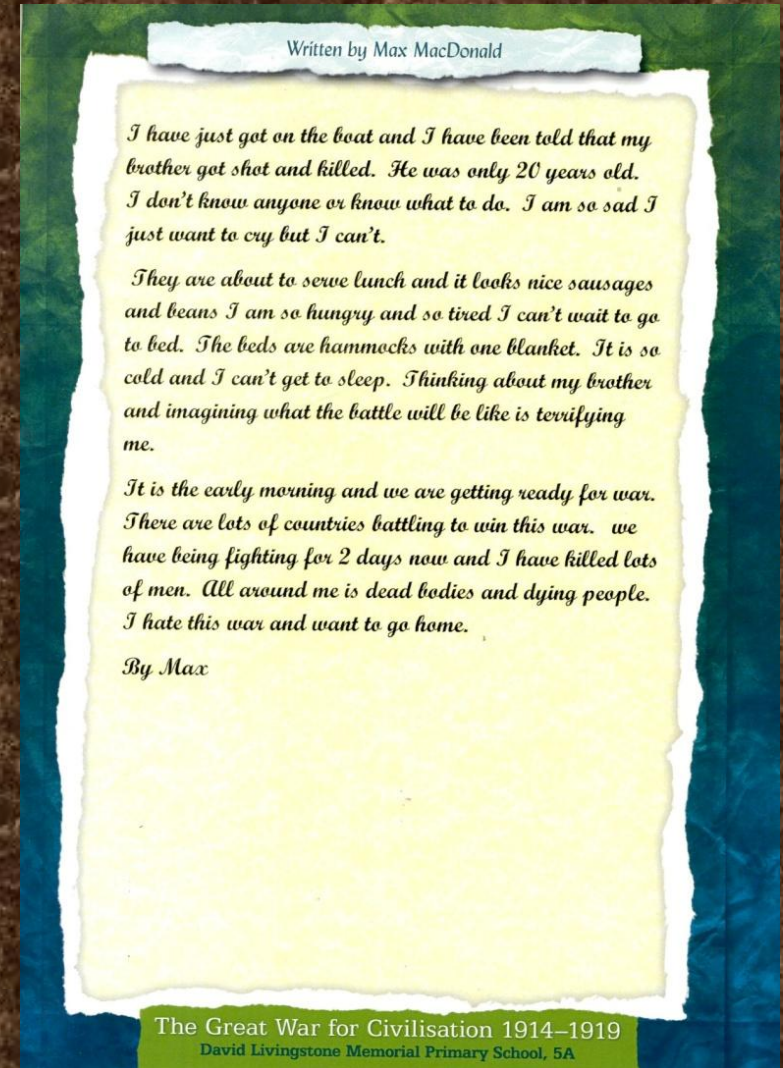 Written by Max MacDonald
I have just got on the boat and I have been told that my
brother got shot and killed. He was only 20 years old.
I don't know anyone or know what to do. I am so sad I
just want to cry but I can't.
They are about to serve lunch and it looks nice sausages
and beans I am so hungry and so tired I can't wait to go
to bed. The beds are hammocks with one blanket. It is so
cold and I can't get to sleep. Thinking about my brother
and imagining what the battle will be like is terrifying
me.
It is the early morning and we are getting ready for war.
There are lots of countries battling to win this war. we
have being fighting for 2 days now and I have killed lots
of men. All around me is dead bodies and dying people.
I hate this war and want to go home.
By Max
The Great War for Civilisation 1914–1919
David Livingstone Memorial Primary School, 5A